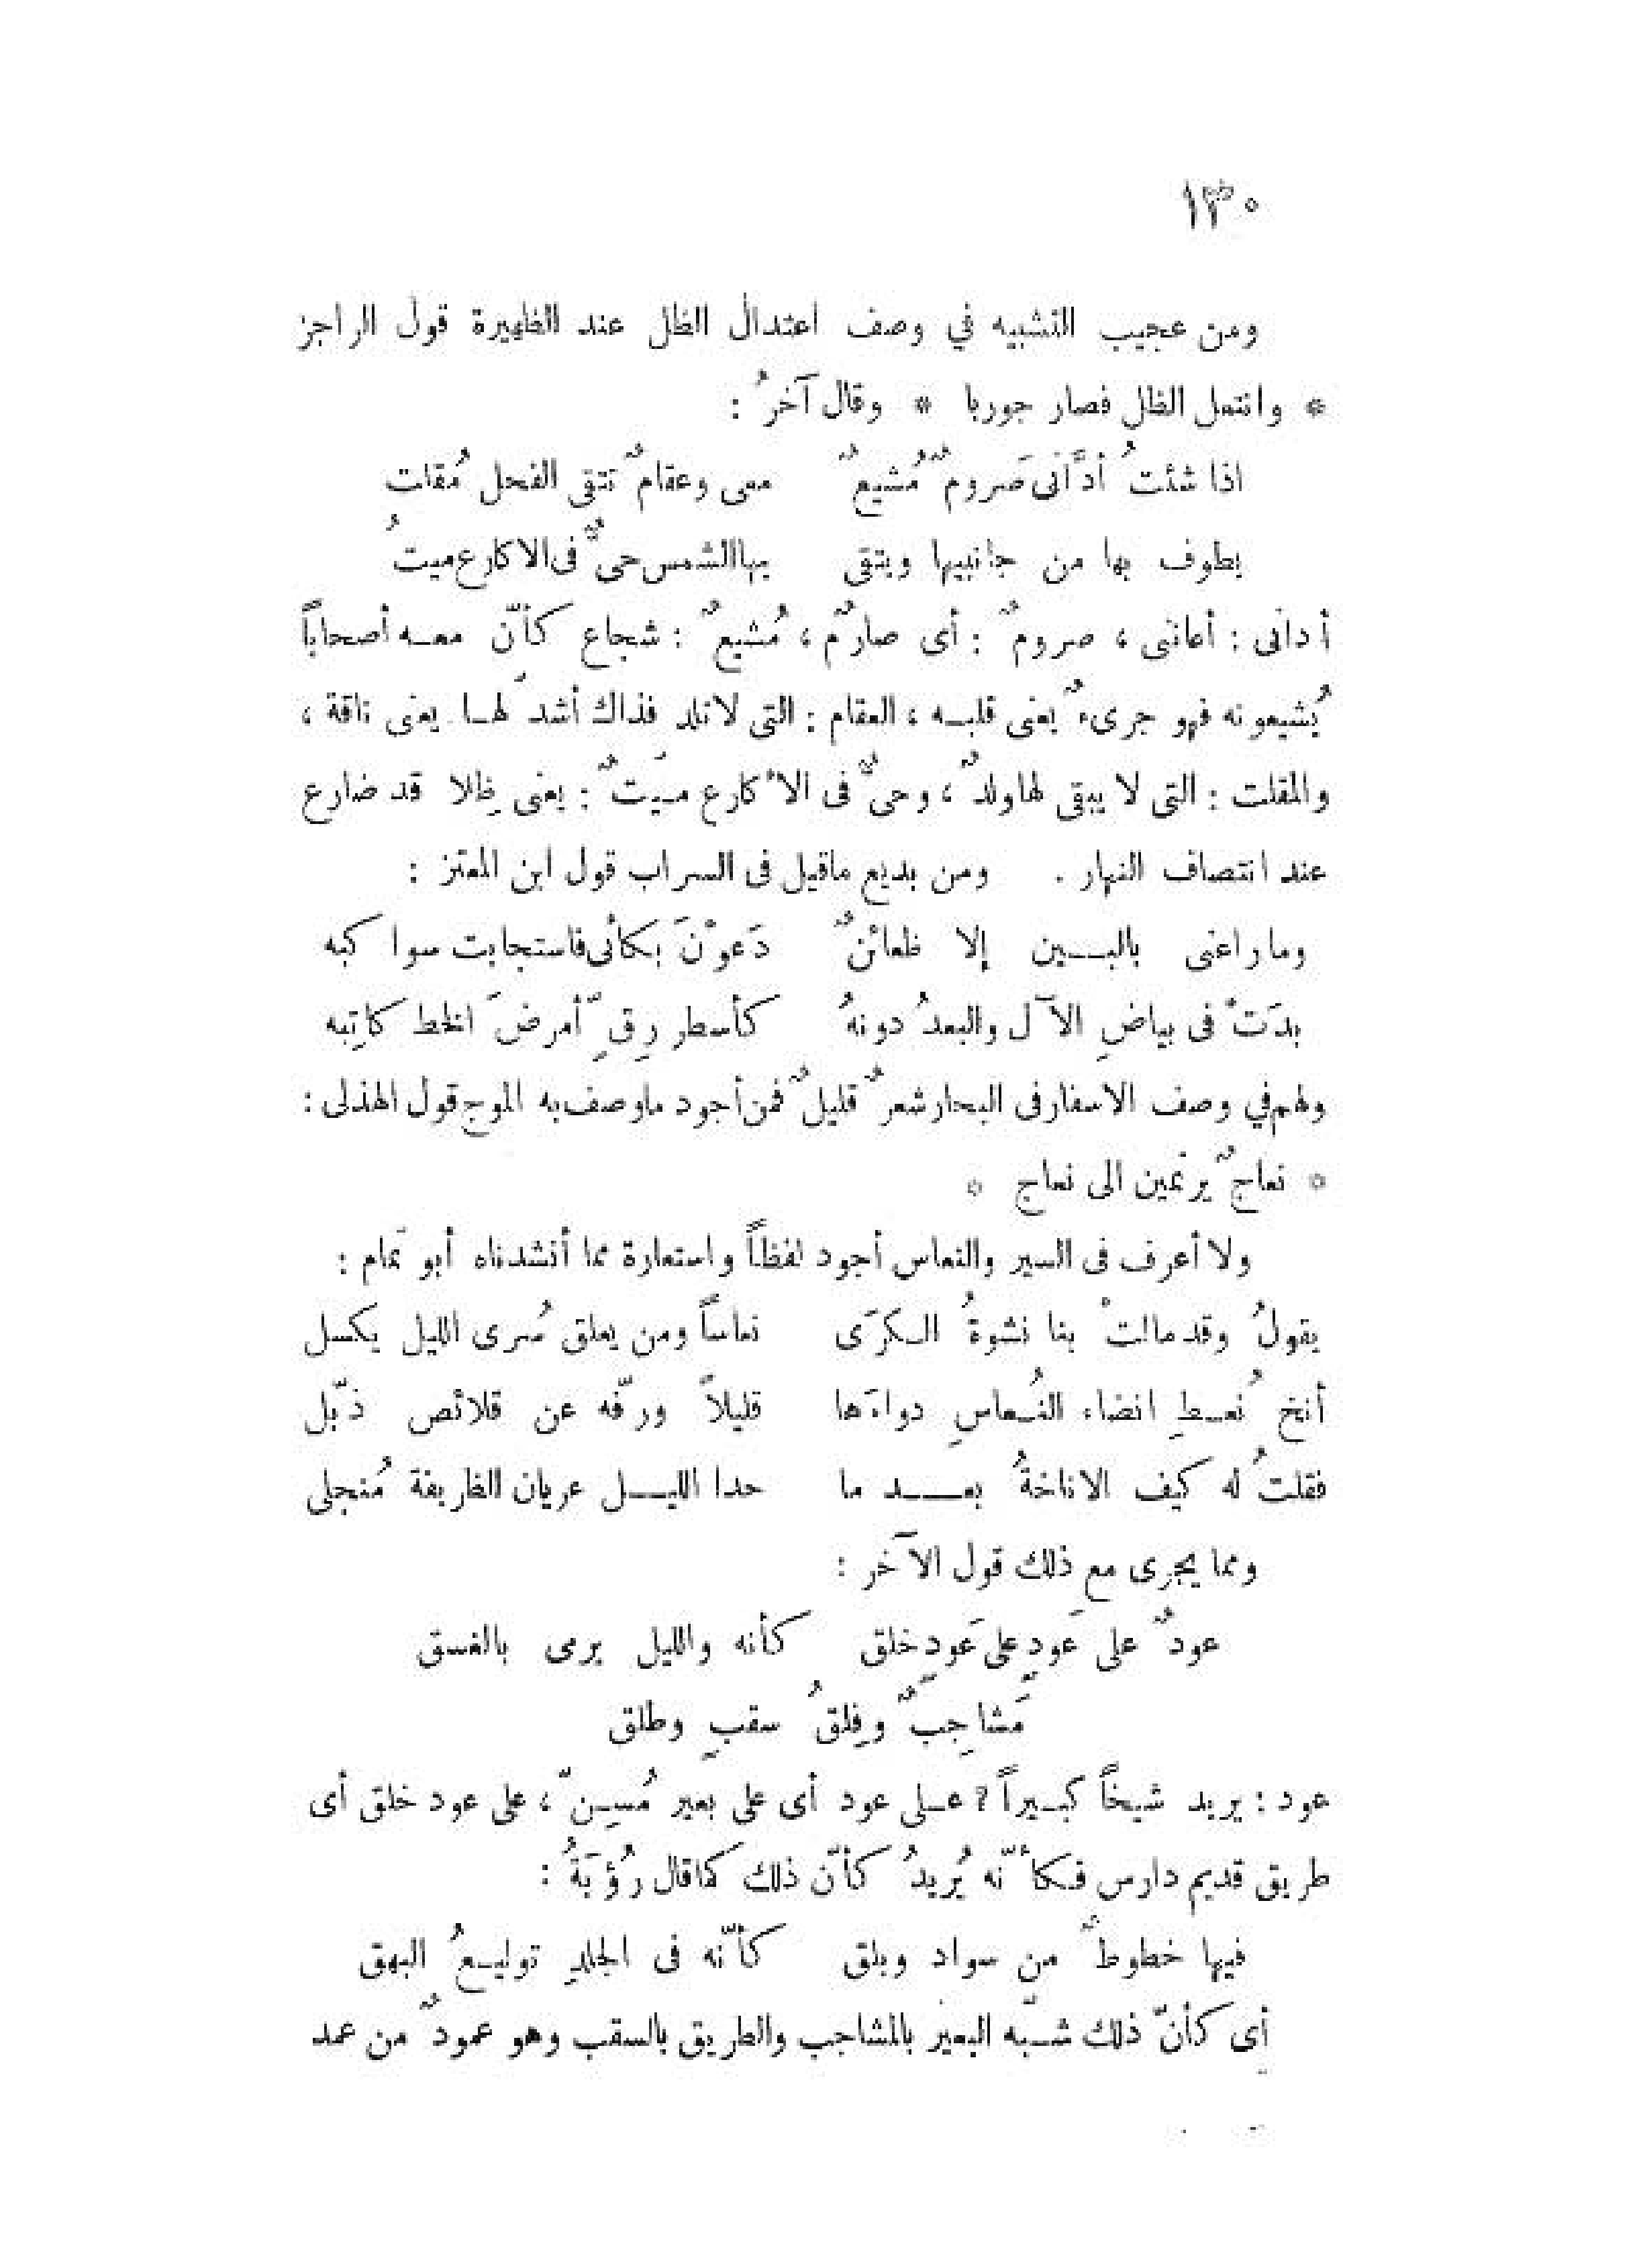 ١٣٠
ومن عجيب التشبيه في وصف اعتدال الظل عند الظهيرة قول الراجز
* وانتعل الظل فصار جوربا * وقال آخرُ :
اذا شئتُ أدّانى صَرومٌ مُشيعٌ معى وعقامٌ تتقى الفحل مُقلت
يطوف بها من جانبيها ويتقى بها الشمس حىٌّ فى الاكارع ميتُ
أدانى : أعاننى ، صرومٌ : أى صارمٌ ، مُشيعٌ : شجاع كأنّ معه أصحاباً
يُشيعونه فهو جرىءٌ يعنى قلبه ، العقام : التى لا تلد فذاك أشدَ لها يعنى ناقة ،
والمقلت : التى لا يبقى لها ولدٌ ، وحىٌّ فى الأكارع ميَتٌ : يعنى ظِلا قد ضارع
عند انتصاف النهار . ومن بديع ماقيل فى السراب قول ابن المعتز :
وما راعنى بالبين إلا ظعائنٌ دَعوْنَ بكائى فاستجابت سواكبه
بدَتْ فى بياضِ الآل والبعدُ دونهُ كأسطر رِقٍّ أمرضَ الخط كاتِبه
ولهم في وصف الاسفار فى البحار شعرٌ قليلٌ فمن أجود ماوصف به الموج قول الهذلى :
* نعاجٌ يرتمين الى نعاج *
ولا أعرف فى السير والنعاس أجود لفظاً واستعارة مما أنشدناه أبو تمام :
يقولُ وقد مالتْ بنا نشوةُ الكرَى نعاساً ومن يعلق سُرى الليل يكسل
أنخ نُعطِ انضاء النُعاسِ دواءَها قليلاً ورفّه عن قلائص ذبّل
فقلتُ له كيف الاناخةُ بعد ما حدا الليل عريان الظريفة مُنجلى
ومما يجرى مع ذلك قول الآخر :
عودٌ على عَودٍ على عَودٍ خلق كأنه والليل يرمى بالغسق
مَشاجِبٌ وفِلقُ سقبٍ وطلق
عود : يريد شيخاً كبيراً ؟ على عود أى على بعير مُسِنّ ، على عود خلق أى
طريق قديم دارس فكأنّه يُريدُ كأنّ ذلك كماقال رُؤبَةُ :
فيها خطوطٌ من سواد وبلق كأنّه فى الجلدِ توليعُ البهق
أى كأنّ ذلك شبّه البعير بالمشاجب والطريق بالسقب وهو عمودٌ من عمد